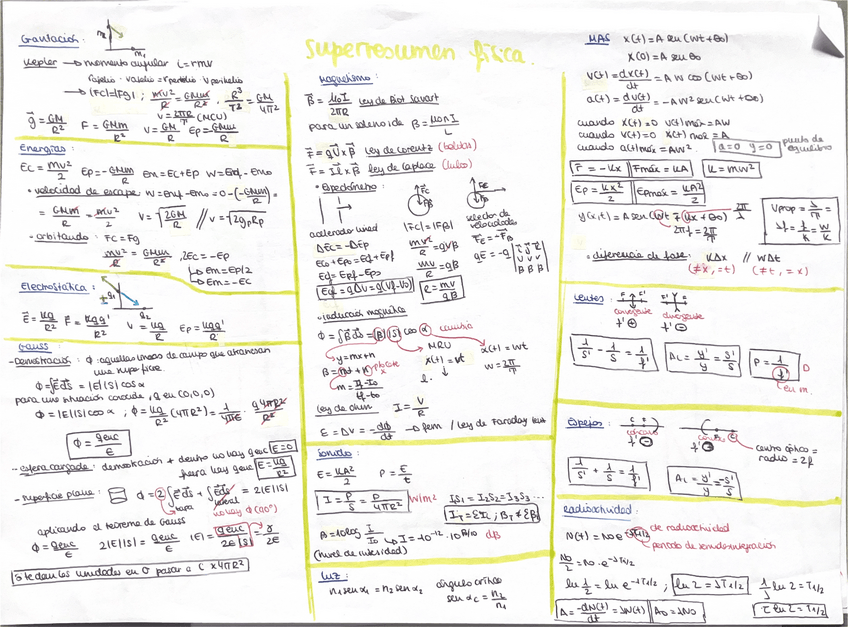 Superresumen física.
Gravitación:
m₂
m₁
Kepler → momento angular L=rmv
rafelio · vafelio = rperihelio · vperihelio
→ |Fc|=|Fg| ; mv²/R = GMm/R² · R³/T² = GM/4π²
v = 2πR/T (MCU)
g = GM/R² F = GMm/R² v = GM/R Ep = GMm/R
Energías:
Ec = mv²/2 Ep = -GMm/R Em = Ec+Ep W = Emf - Emo
· velocidad de escape W = Emf - Emo = 0 - (-GMm/R) =
= GMm/R = mv²/2 v = √2GM/R // v = √2g₀Rp
- orbitando: Fc = Fg
mv²/R = GMm/R² , 2Ec = -Ep
↳ Em = Ep/2
↳ Em = -Ec
Electrostática:
q₁
q₂
E = kq/R² F = kqq'/R² V = kq/R Ep = kqq'/R
Gauss:
- Demostración: Φ: aquellas líneas de campo que atraviesan
una superficie
Φ = ∫E ds = |E||S| cos α
para una situación concreta, q en (0,0,0)
Φ = |E||S| cos α ; Φ = kq/R² (4πR²) = 1/4πε · q4πR²/R²
Φ = qenc/ε
- esfera cargada: demostración + dentro no hay qenc E=0
fuera hay qenc E = kq/R²
- superficie plana: Φ = 2∫E ds + ∫E ds = 2|E||S|
tapa lateral
no hay Φ (90°)
aplicando el teorema de Gauss
Φ = qenc/ε 2|E||S| = qenc/ε |E| = qenc/2ε|S| = σ/2ε
Si te dan las unidades en σ pasar a C x 4πR²
Magnetismo:
B = μ₀I/2πR Ley de Biot Savart
para un solenoide B = μ₀nI/L
F = qV x B Ley de Lorentz (bolitas)
F = Il x B Ley de Laplace (tubos)
Fc
|Fc| = |FB|
selector de velocidades
FE = -FB
ΔEc = -ΔEp
mv²/R = qVB
Eco + Epo = Ecf + Epf
mv/R = qB
R = mv/qB
- inducción magnética
Φ = ∫B ds = |B| |S| cos α cambia
y = mx + n
MRU
x(t) = vt
x(t) = wt
w = 2π/T
Ley de Ohm I = V/R
ε = ΔV = -dΦ/dt → fem / Ley de Faraday
Sonido:
E = kA²/2 P = E/t
I = P/S = P/4πR² W/m² I₁S₁ = I₂S₂ = I₃S₃ ...
β = 10 log I/I₀ ↳ I = 10⁻¹² · 10^β/10 dB
(nivel de intensidad)
Luz:
n₁ sen α₁ = n₂ sen α₂ ángulo crítico
sen αc = n₂/n₁
MAS x(t) = A sen (wt + θ₀)
x(0) = A sen θ₀
v(t) = dx(t)/dt = A w cos (wt + θ₀)
a(t) = dv(t)/dt = -A w² sen (wt + θ₀)
cuando x(t) = 0 v(t) máx = AW
cuando v(t) = 0 x(t) máx = A
cuando a(t) máx = AW² a=0 y=0 punto de equilibrio
F = -kx Fmáx = kA k = mw²
Ep = kx²/2 Epmáx = kA²/2
y(x,t) = A sen (wt ∓ kx + θ₀) 2π/λ
2πf = 2π/T
Vprop = λ/T =
λf = λ/T = w/k
- diferencia de fase: kΔx // wΔt
(≠x, =t) (≠t, =x)
Lentes:
convergente divergente
f' ⊕ f' ⊖
1/s' - 1/s = 1/f' AL = y'/y = s'/s P = 1/f' D
en m.
Espejos:
cóncavo
f' ⊖
centro óptico =
radio = 2f
1/s' + 1/s = 1/f' AL = y'/y = -s'/s
Radioactividad:
N(t) = N₀ e de radioactividad
periodo de semidesintegración
N₀/2 = N₀ · e^-λT1/2
ln 1/2 = ln e^-λT1/2 ; ln 2 = λT1/2 1/λ ln 2 = T1/2
A = -dN(t)/dt = λN(t) A₀ = λN₀ τ ln 2 = T1/2